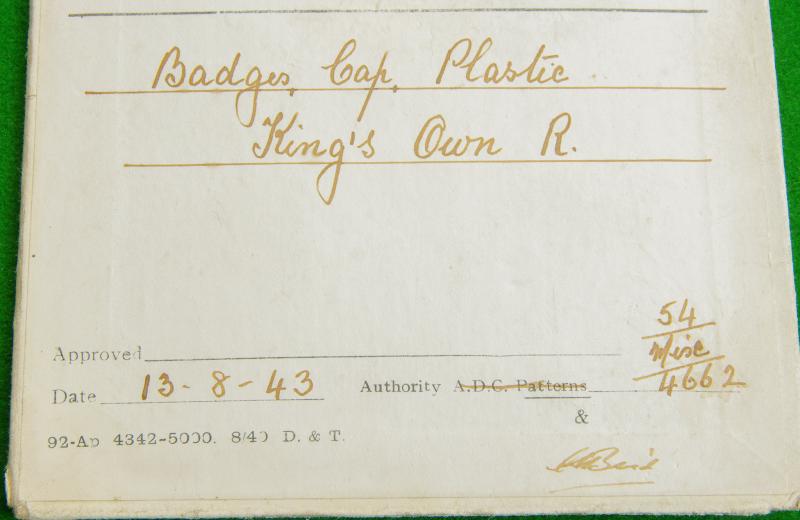 Badges, Cap, Plastic
King's Own R.
54
Misc
4662
Approved
Date 13-8-43 Authority A.D.C. Patterns
&
92-Ap 4342-5000. 8/40 D. & T.